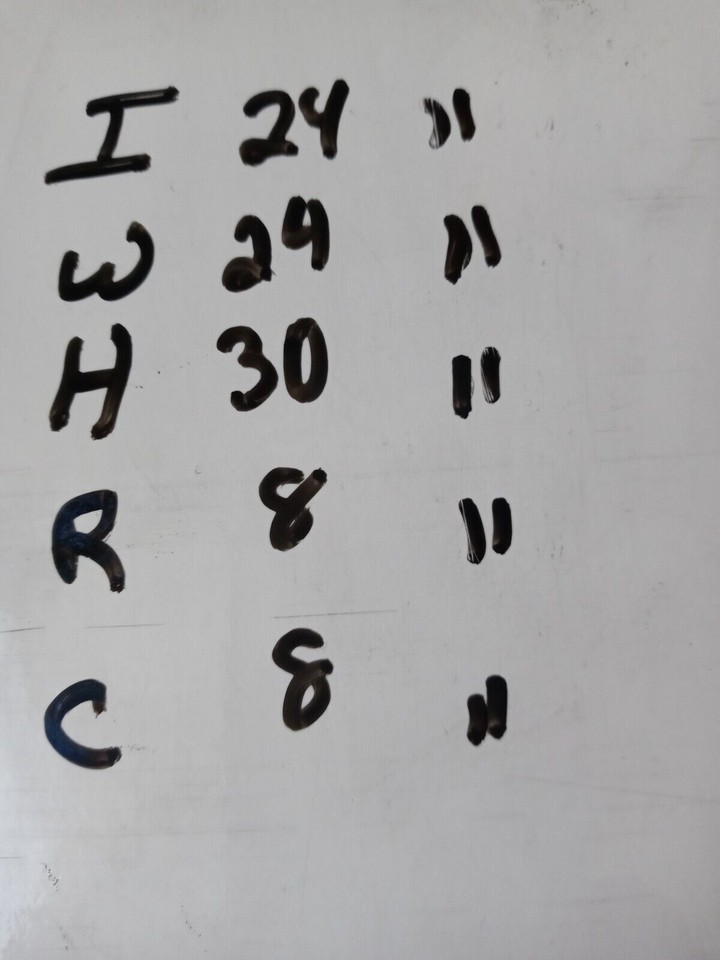 I 24 "
W 24 "
H 30 "
R 8 "
C 8 "